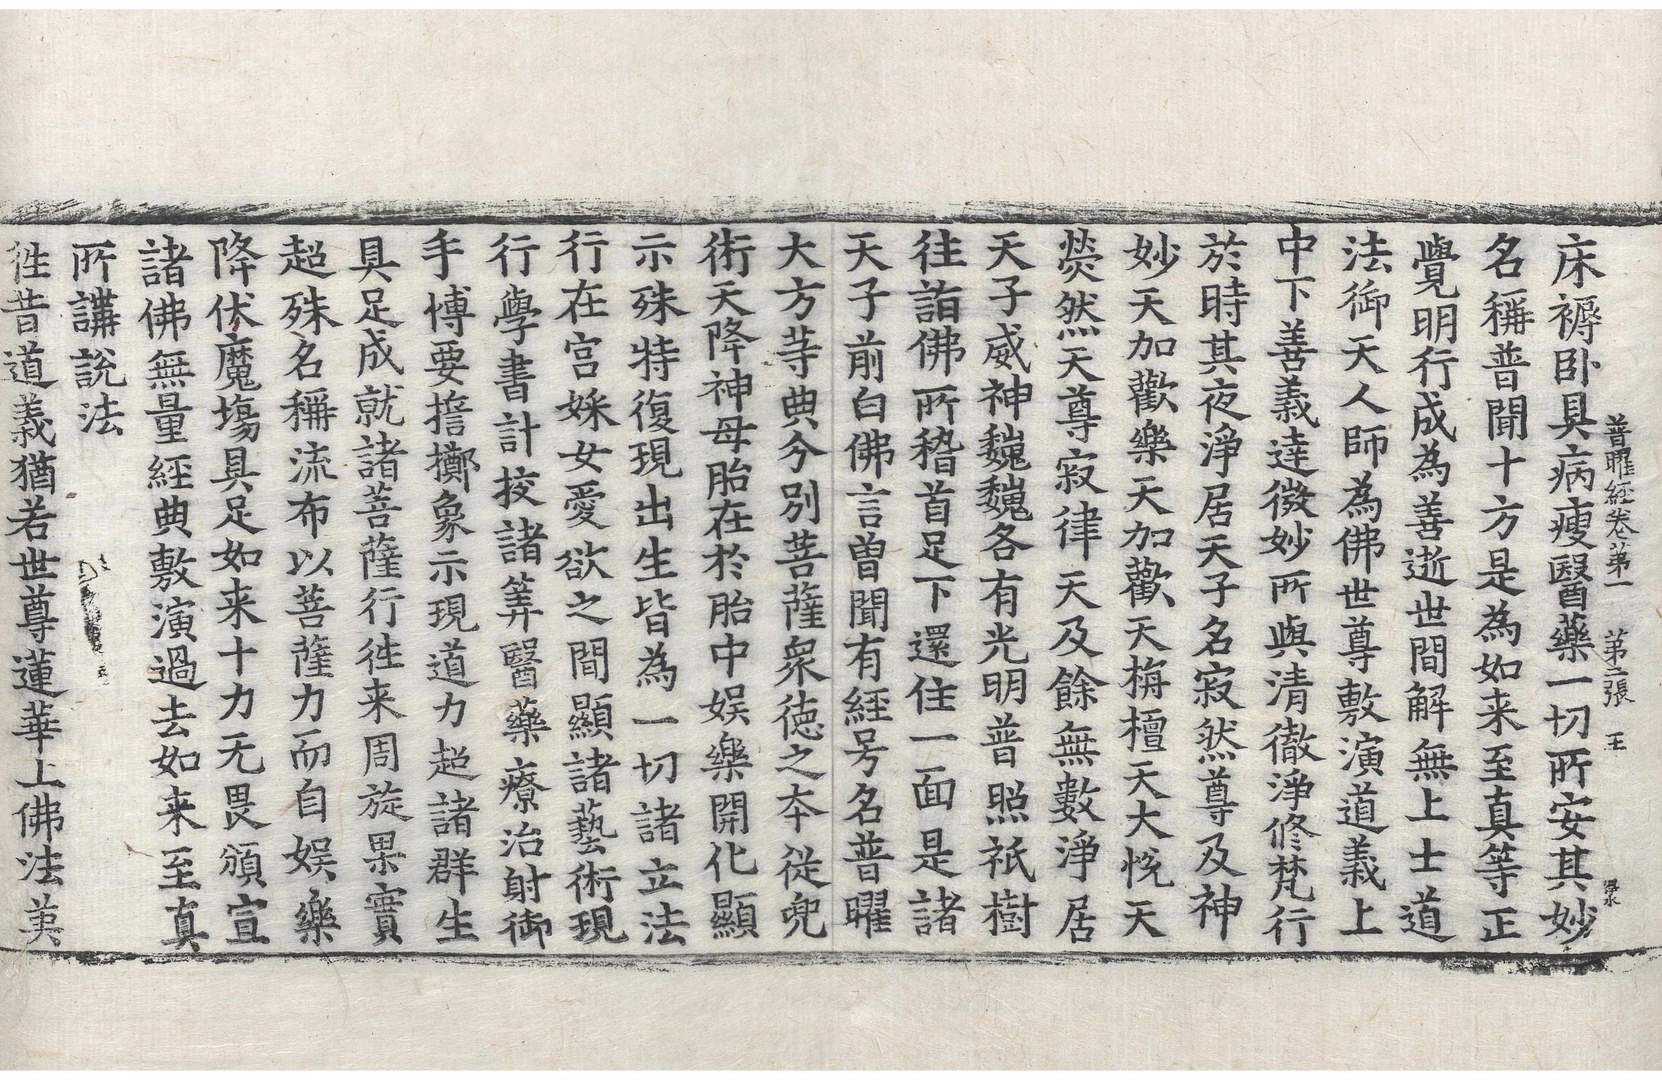 普曜經卷第一 第二張 王
床褥卧具病瘦醫藥一切所安其妙
名稱普聞十方是為如来至真等正
覺明行成為善逝世間解無上士道
法御天人師為佛世尊敷演道義上
中下善義達微妙所與清徹淨修梵行
於時其夜淨居天子名寂然尊及神
妙天加歡樂天加歡天栴檀天大恱天
熒然天尊寂律天及餘無數淨居
天子威神魏魏各有光明普照祇樹
往詣佛所稽首足下還住一面是諸
天子前白佛言曽聞有經号名普曜
大方等典分別菩薩衆徳之本從兜
術天降神母胎在於胎中娱樂開化顯
示殊特復現出生皆為一切諸立法
行在宫婇女愛欲之間顯諸藝術現
行學書計挍諸筭醫藥療治射御
手博要擲象示現道力超諸群生
具足成就諸菩薩行徃来周旋果實
超殊名稱流布以菩薩力而自娱樂
降伏魔塲具足如来十力无畏頒宣
諸佛無量經典敷演過去如来至真
所講說法
徃昔道義猶若世尊蓮華上佛法英